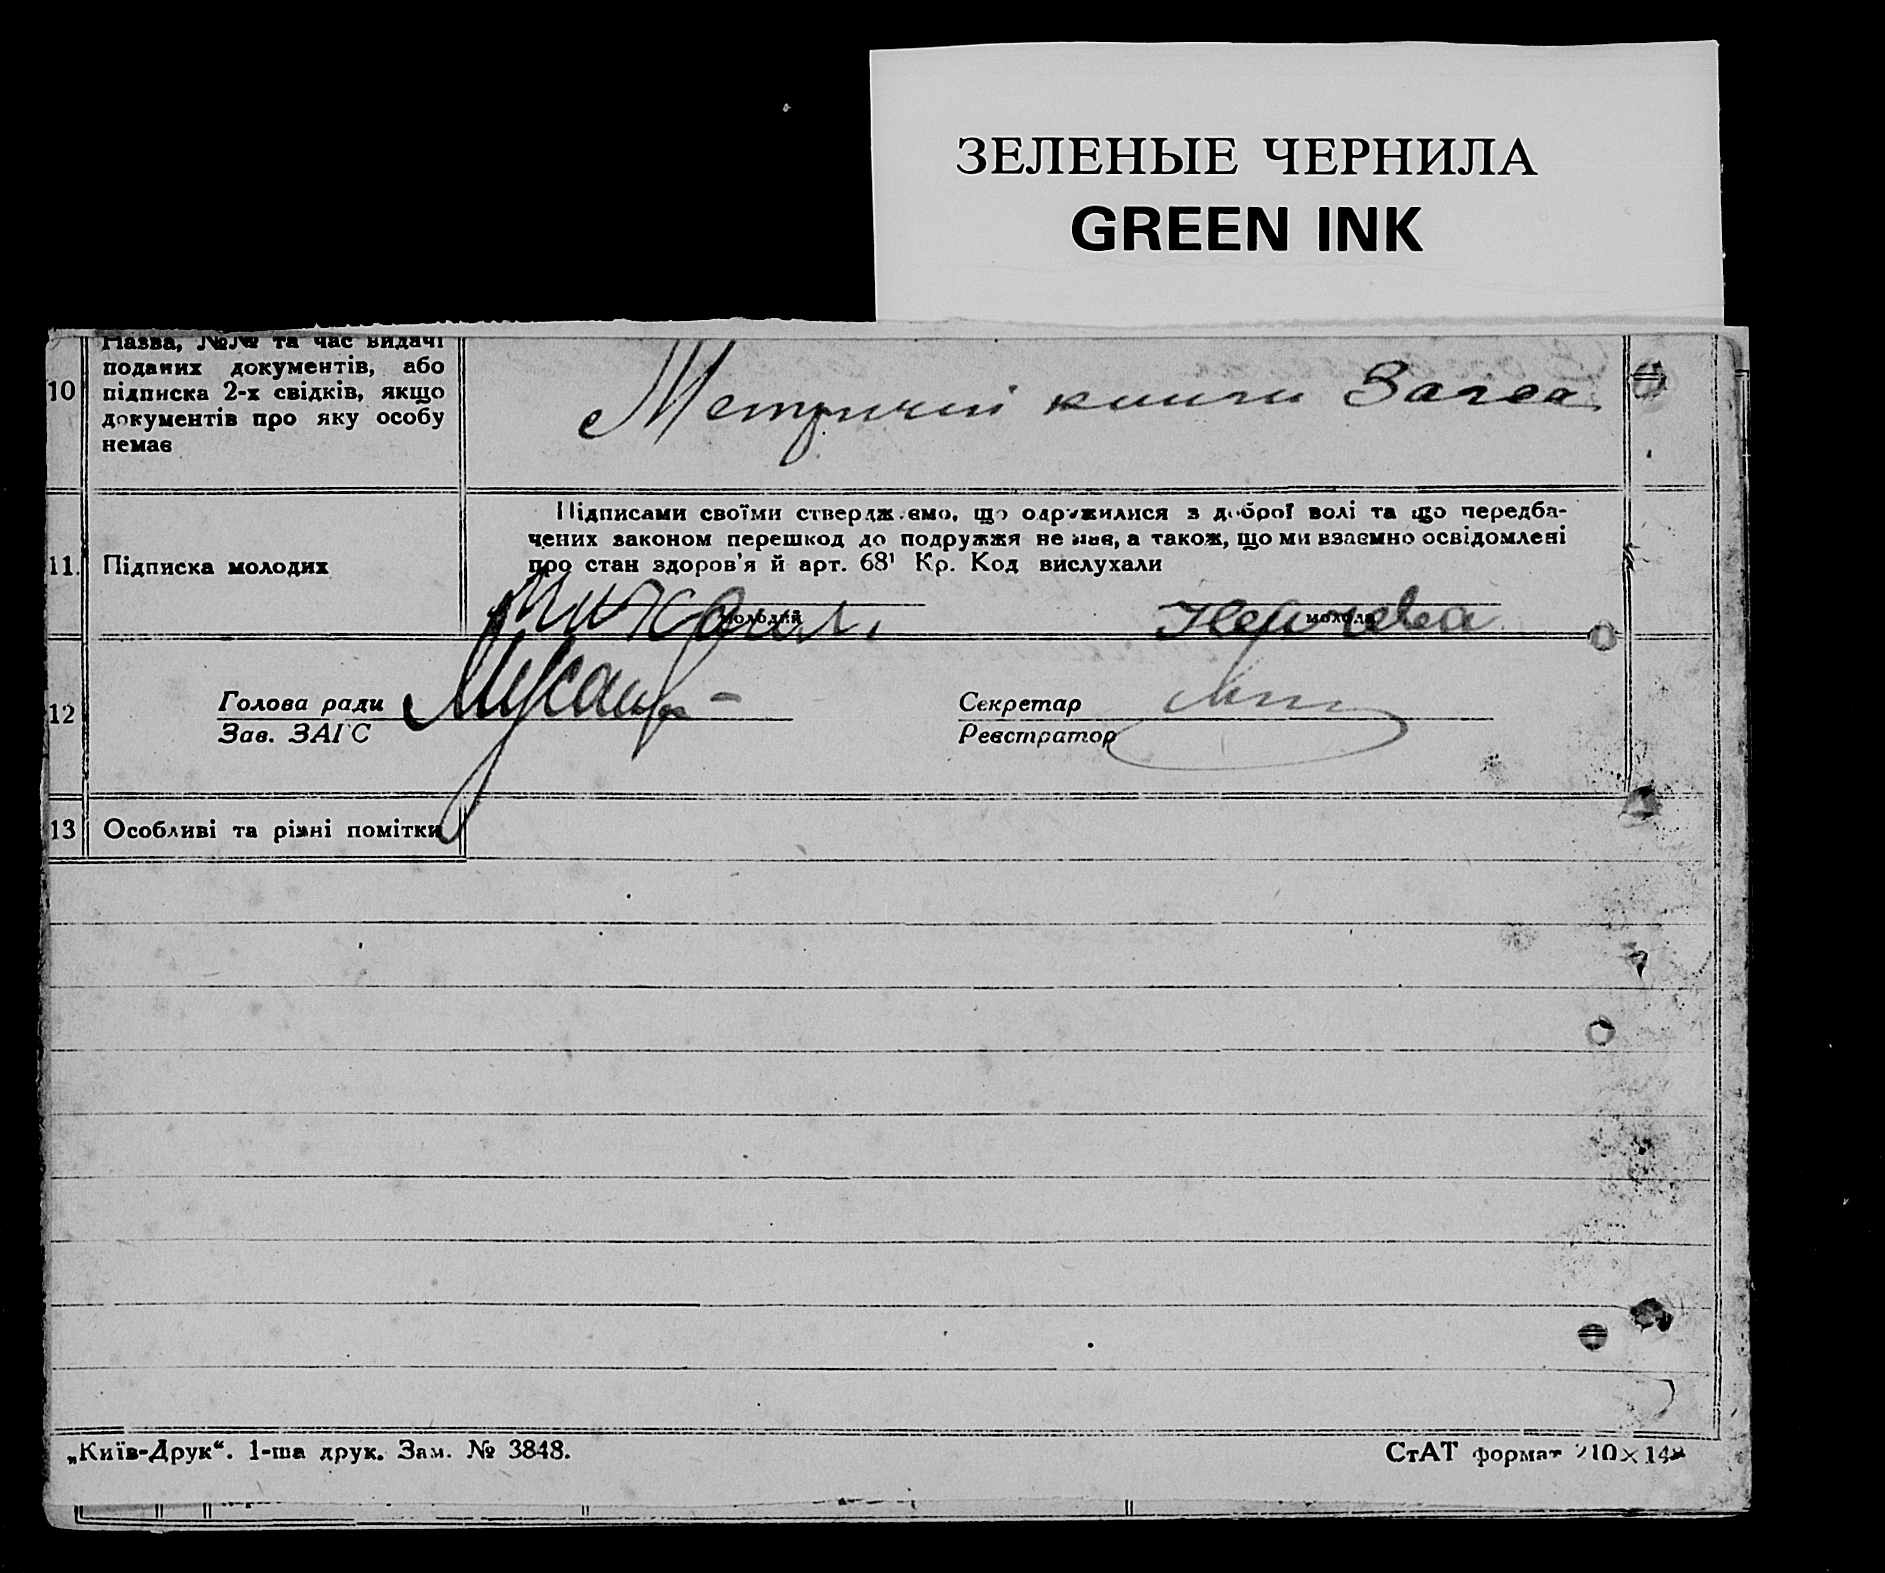 ЗЕЛЕНЫЕ ЧЕРНИЛА
GREEN INK
10
Назва, №№ та час видачі
поданих документів, або
підписка 2-х свідків, якщо
документів про яку особу
немає
Метричні книги Загса
11.
Підписка молодих
Підписами своїми стверджуємо, що одружилися з доброї волі та що передба-
чених законом перешкод до подружжя не має, а також, що ми взаємно освідомлені
про стан здоров'я й арт. 68¹ Кр. Код вислухали
молодий
молода
12
Голова ради
Зав. ЗАГС
Секретар
Реєстратор
13
Особливі та різні помітки
„Київ-Друк“. 1-ша друк. Зам. № 3848.
СтАТ формат 210×148